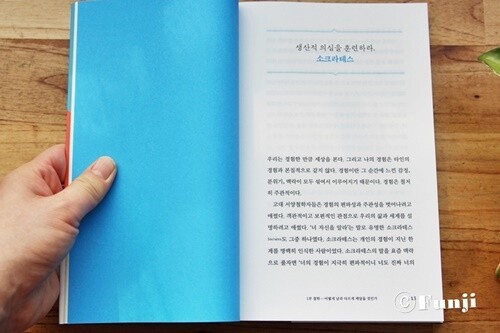 생산적 의심을 훈련하라,
소크라테스
우리는 경험한 만큼 세상을 본다. 그리고 나의 경험은 타인의
경험과 본질적으로 같지 않다. 경험이란 그 순간에 느낀 감정,
분위기, 맥락이 모두 섞여서 이루어지기 때문이다. 경험은 철저
히 주관적이다.
고대 서양철학자들은 경험의 편파성과 주관성을 벗어나려고
애썼다. 객관적이고 보편적인 관점으로 우리의 삶과 세계를 설
명하려고 애썼다. '너 자신을 알라'는 말로 유명한 소크라테스
Socrates도 그중 하나였다. 소크라테스는 개인의 경험이 지닌 한
계를 명백히 인식한 사람이었다. 소크라테스의 말을 요즘 맥락
으로 풀자면 "너의 경험이 지극히 편파적이니 너도 진짜 너의
1부 철학 - 어떻게 남과 다르게 해답을 찾인가
13
© Funji